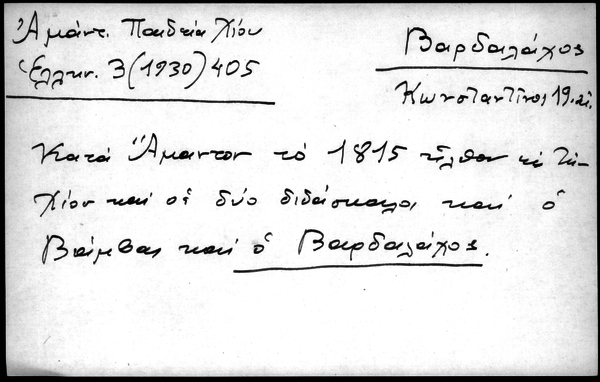 Ἀμάντ. Παιδεία Χίου
Ἑλλην. 3 (1930) 405
Βαρδαλάχος
Κωνσταντῖνος 19. αἰ.
Κατά Ἄμαντον τό 1815 ἦλθον εἰς Τήν
Χίον καί οἱ δύο διδάσκαλοι καί ὁ
Βάμβας καί ὁ Βαρδαλάχος.